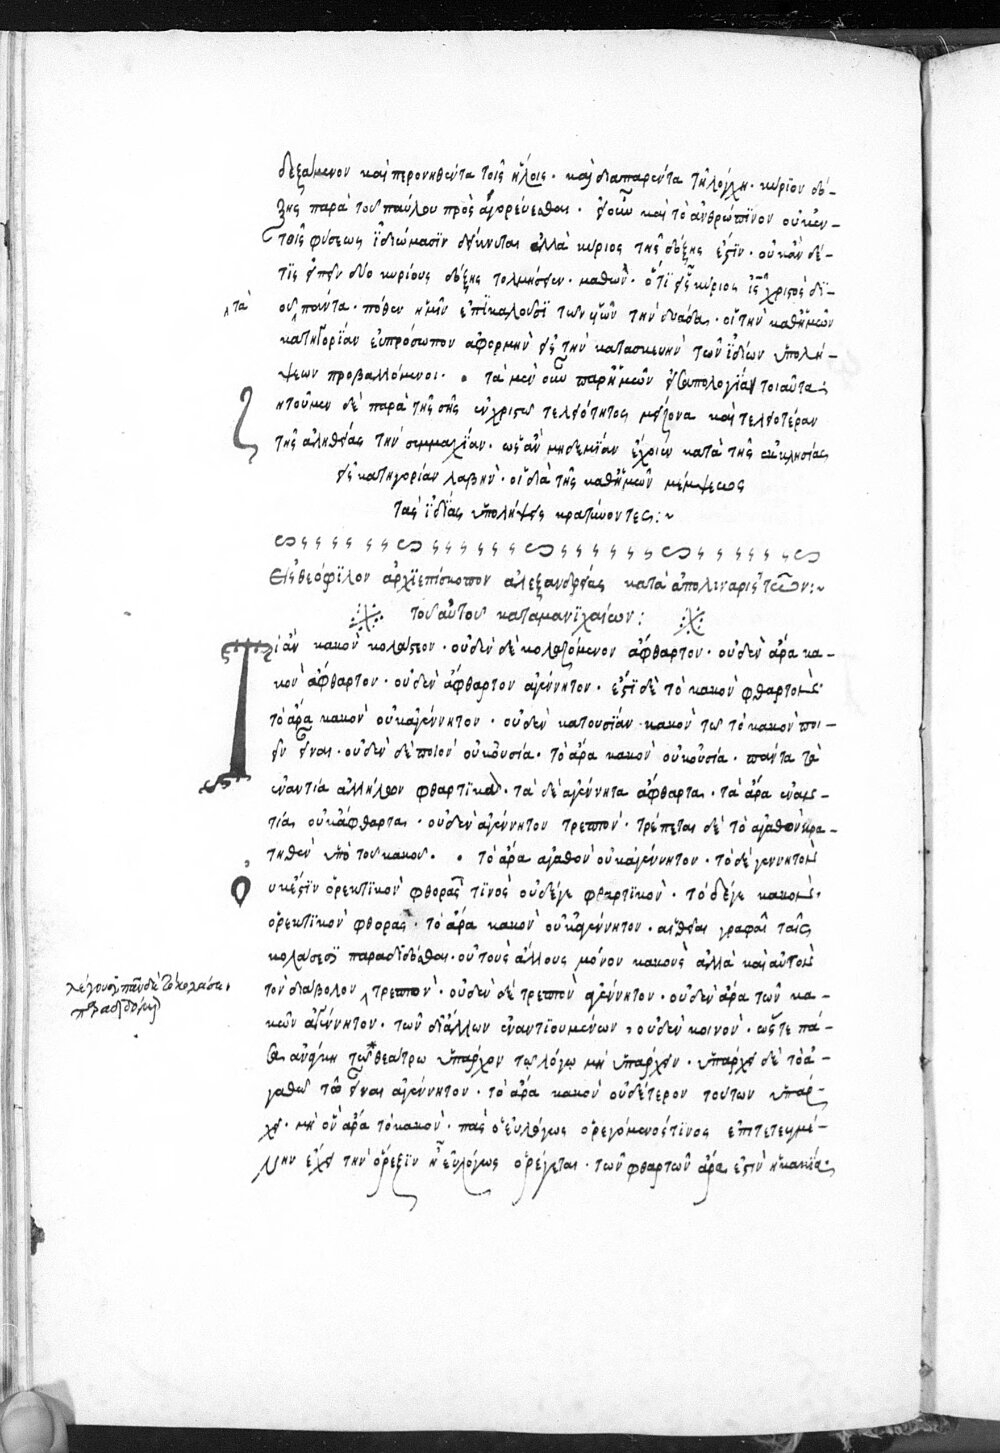 δεξάμενον καὶ περονηθέντα τοῖς ἥλοις · καὶ διαπαρέντα τῇ λόγχῃ · κύριον δό-
ξης παρὰ τοῦ παύλου προσαγορεύεσθαι · εἰ οὖν καὶ τὸ ἀνθρώπινον οὐκ ἐν
τοῖς φύσεως ἰδιώμασιν δείκνυται ἀλλὰ κύριος τῆς δόξης ἐστὶν · οὐκ ἂν δέ
τις εἰπεῖν δύο κυρίους δόξης τολμήσειεν · μαθὼν · ὅτι εἷς κύριος ἰς χριστὸς δι-
τὰ
οὗ πάντα · πόθεν ἡμῖν ἐπικαλοῦσι τῶν υἱῶν τὴν δυάδα · οἱ τὴν καθ' ἡμῶν
κατηγορίαν εὐπρόσωπον ἀφορμὴν εἰς τὴν κατασκευὴν τῶν ἰδίων ὑπολή-
ψεων προβαλλόμενοι · τὰ μὲν οὖν παρ' ἡμῶν εἰς ἀπολογίαν τοιαῦτα
ζ
ητοῦμεν δὲ παρὰ τῆς σῆς ἐν χριστῷ τελειότητος μείζονα καὶ τελειοτέραν
τῆς ἀληθείας τὴν συμμαχίαν · ὡς ἂν μηδεμίαν ἔχοιεν κατὰ τῆς ἐκκλησίας
εἰς κατηγορίαν λαβὴν · οἱ διὰ τῆς καθ' ἡμῶν μέμψεως
τὰς ἰδίας ὑπολήψεις κρατύνοντες :~
Εἰς θεόφιλον ἀρχιεπίσκοπον ἀλεξανδρείας κατὰ ἀπολιναριστῶν :~
τοῦ αὐτοῦ κατὰ μανιχαίων :
Τ
ὶ ἂν κακὸν κολαστέον · οὐδὲν δὲ κολαζόμενον ἄφθαρτον · οὐδὲν ἄρα κα-
κὸν ἄφθαρτον · οὐδὲν ἄφθαρτον ἀγέννητον · ἐστὶ δὲ τὸ κακὸν φθαρτὸν
τὸ ἄρα κακὸν οὐκ ἀγέννητον · οὐδὲν κατουσίαν κακὸν τῷ τὸ κακὸν ποι-
εῖν εἶναι · οὐδὲν δὲ ποιὸν οὐκ οὐσία · τὸ ἄρα κακὸν οὐκ οὐσία · πάντα τὰ
ἐναντία ἀλλήλων φθαρτικὰ · τὰ δὲ ἀγέννητα ἄφθαρτα · τὰ ἄρα ἐναν-
τία οὐκ ἄφθαρτα · οὐδὲν ἀγέννητον τρεπτὸν · τρέπεται δὲ τὸ ἀγαθὸν κρα-
τηθὲν ὑπὸ τοῦ κακοῦ · τὸ ἄρα ἀγαθὸν οὐκ ἀγέννητον · τὸ δὲ γεννητὸν
ὀ
υκέστιν ὀρεκτικὸν φθορᾶς τινὸς οὐδέγε φθαρτικὸν · τὸ δέγε κακὸν
ὀρεκτικὸν φθορᾶς · τὸ ἄρα κακὸν οὐκ ἀγέννητον · αἱ θεῖαι γραφαὶ ταῖς
κολάσεσι παραδίδοσθαι · οὐ τοὺς ἄλλους μόνον κακοὺς ἀλλὰ καὶ αὐτὸν
τὸν διάβολον τρεπτὸν · οὐδὲν δὲ τρεπτὸν ἀγέννητον · οὐδὲν ἄρα τῶν κα-
κῶν ἀγέννητον · τῶν δι' ἄλλων ἐναντιουμένων, οὐδὲν κοινὸν · ὥστε πᾶ-
σα ἀνάγκη τῷ θεάτρῳ ὑπάρχον τῷ λόγῳ μὴ ὑπάρχειν · ὑπάρχει δὲ τὸ ἀ-
γαθῷ τὸ εἶναι ἀγέννητον · τὸ ἄρα κακὸν οὐδέτερον τούτων ὑπάρ-
χει · μὴ ὂν ἄρα τὸ κακὸν · πᾶς ὁ εὐλόγως ὀρεγόμενός τινος ἐπιτετευγμέ-
νην ἔχει τὴν ὄρεξιν ἢ εὐλόγως ὀρέγεται · τῶν φθαρτῶν ἄρα ἐστὶν ἡ κακία